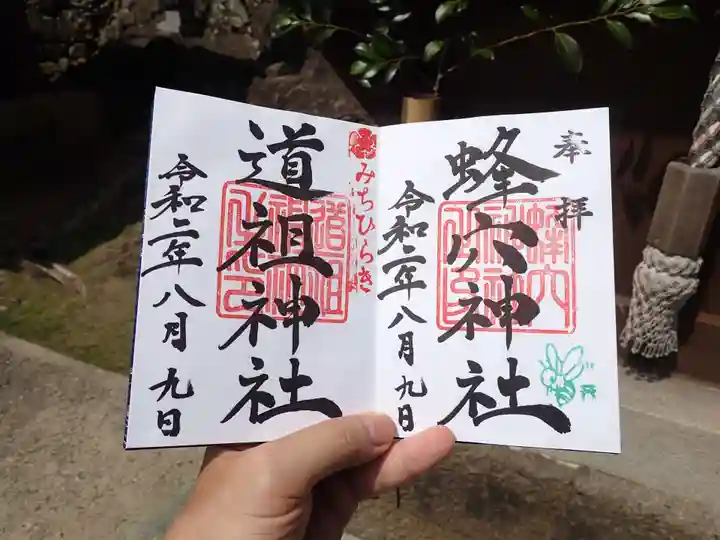 奉拝
蜂穴神社
令和二年八月九日
みちひらき
道祖神社
令和二年八月九日